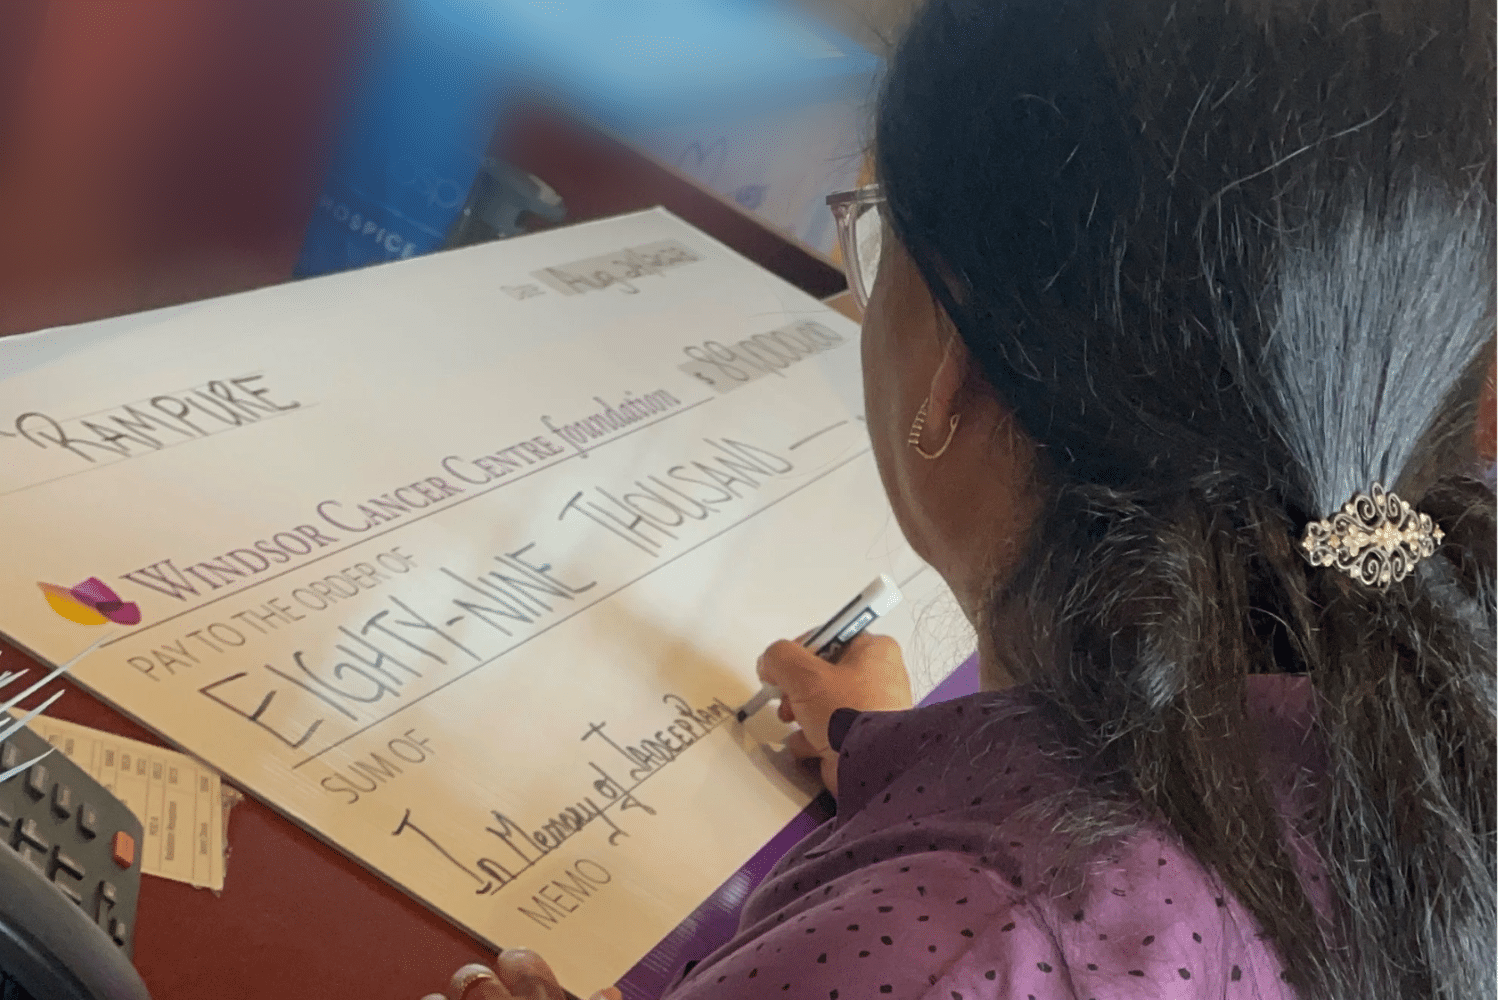 HOSPICE
Date Aug
RAMPURE
$ 89,000.00
WINDSOR CANCER CENTRE foundation
PAY TO THE ORDER OF
EIGHTY-NINE THOUSAND —
SUM OF
In Memory of JADEEP RAM
MEMO